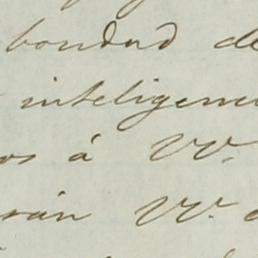 bondad de
inteligenci
os á VV.
rán VV. a